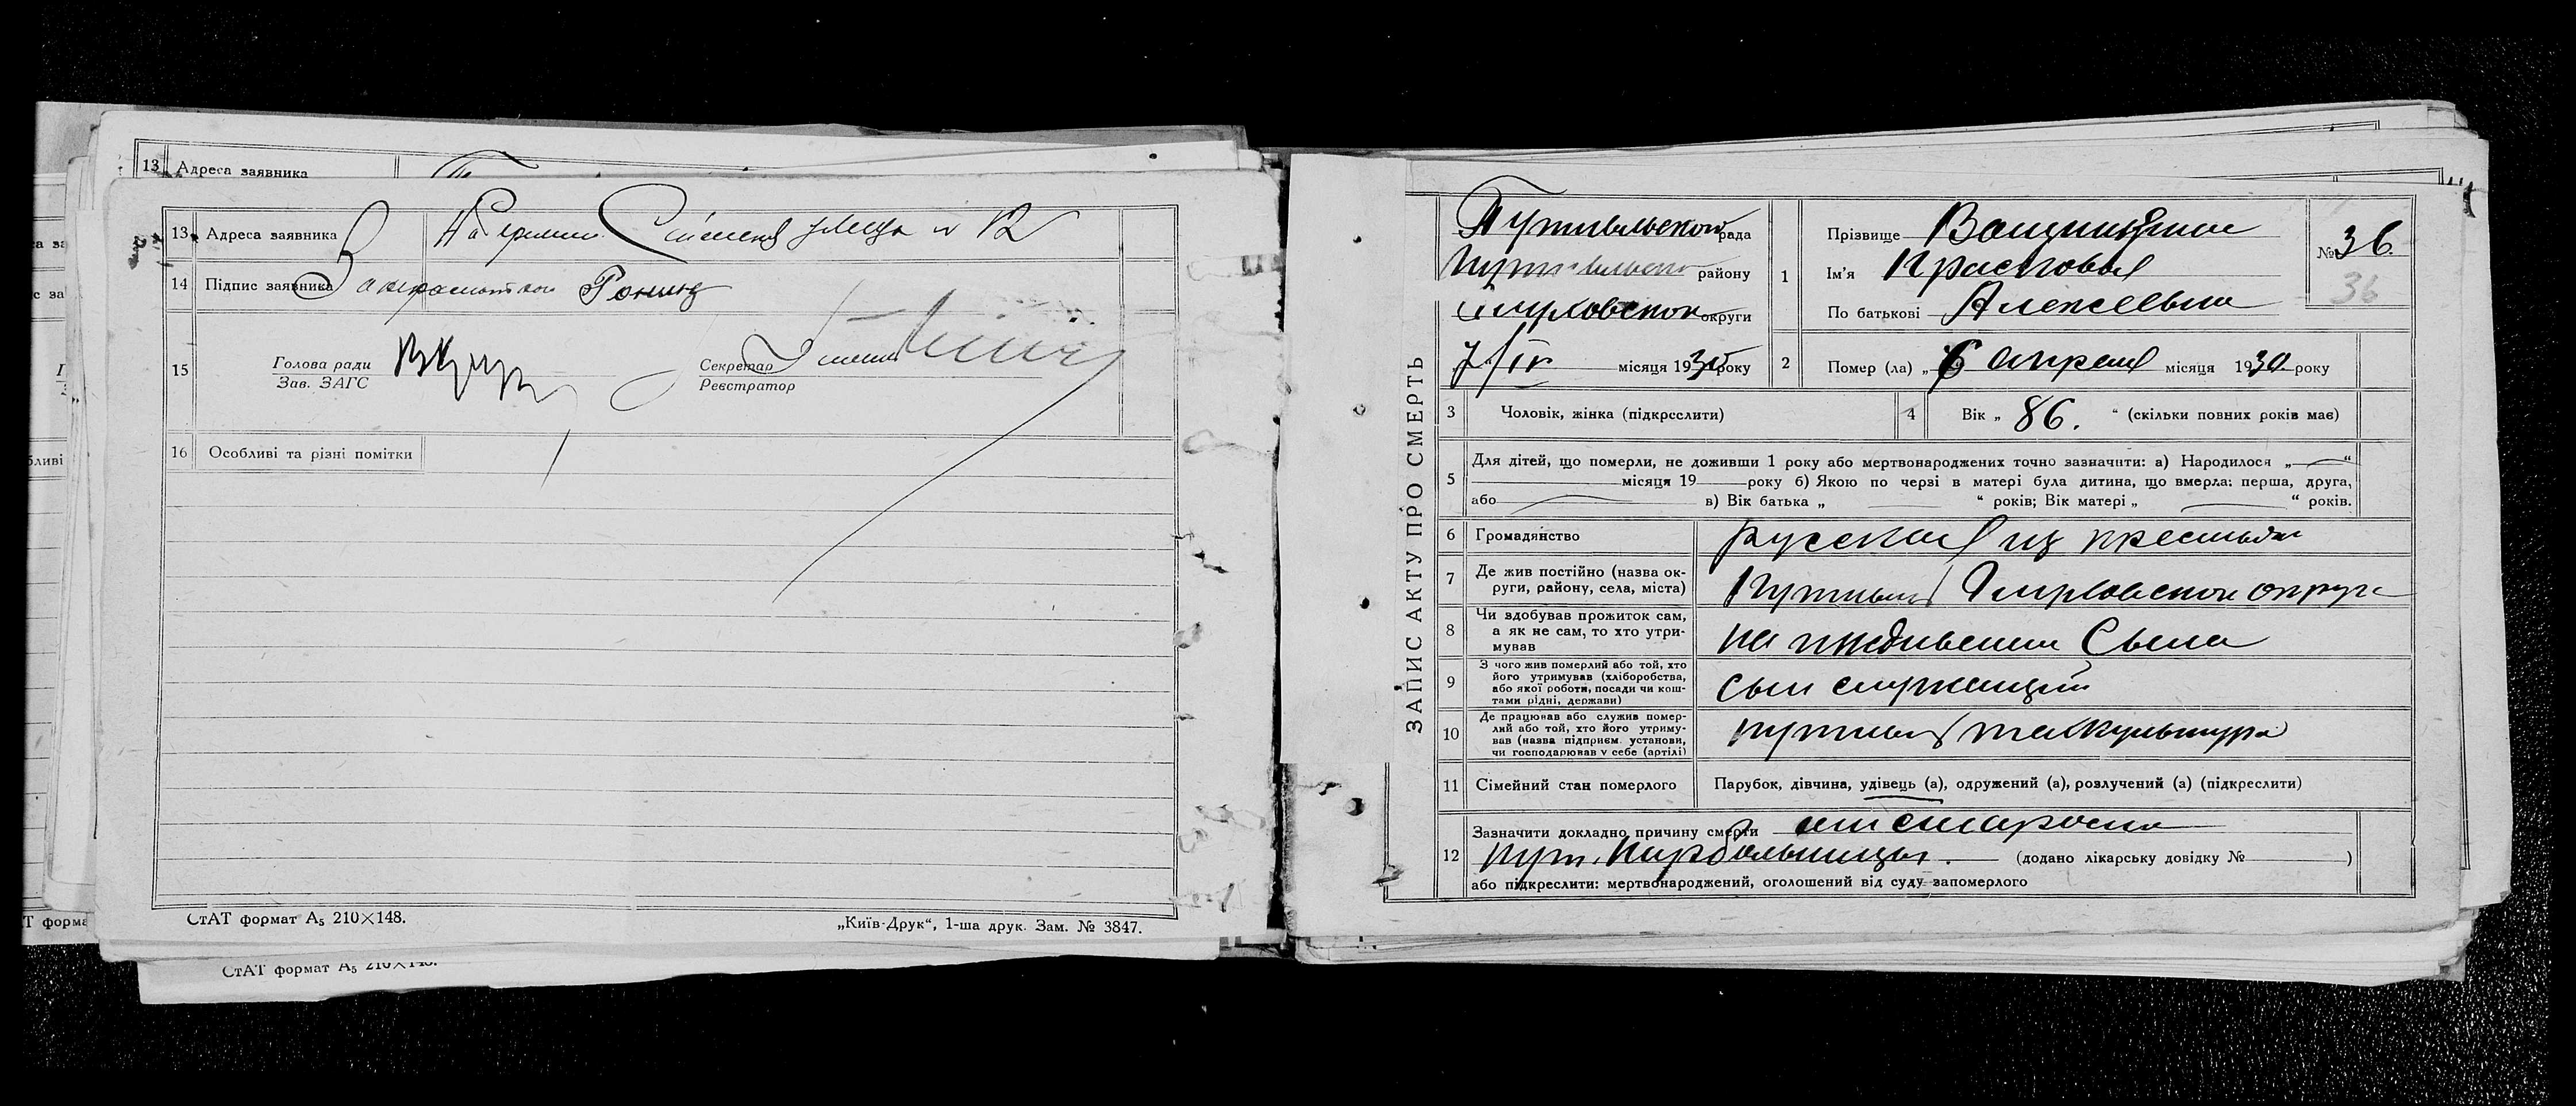 13 Адреса заявника
13 Адреса заявника улица № 12
14 Підпис заявника
15 Голова ради
Зав. ЗАГС
Секретар
Реєстратор
16 Особливі та різні помітки
СтАТ формат А₅ 210×148.
„Київ-Друк“, 1-ша друк. Зам. № 3847.
СтАТ формат А₅ 210×148.
ЗАПИС АКТУ ПРО СМЕРТЬ
Путивльской рада
Путивльского району
Глуховской округи
7/IV місяця 1930 року
1 Прізвище
Ім'я
По батькові Алексеевна
№ 36.
36
2 Помер (ла) „ 6 апреля місяця 1930 року
3 Чоловік, жінка (підкреслити)
4 Вік „ 86. “ (скільки повних років має)
5 Для дітей, що померли, не доживши 1 року або мертвонароджених точно зазначити: а) Народилося „ “
місяця 19 року б) Якою по черзі в матері була дитина, що вмерла: перша, друга,
або в) Вік батька „ “ років; Вік матері „ “ років.
6 Громадянство русская из крестьян
7 Де жив постійно (назва ок-
руги, району, села, міста)
Путивль Глуховской округи
8 Чи здобував прожиток сам,
а як не сам, то хто утри-
мував
на иждивении сына
9 З чого жив померлий або той, хто
його утримував (хліборобства,
або якої роботи, посади чи кош-
тами рідні, держави)
сын служащий
10 Де працював або служив помер-
лий або той, хто його утриму-
вав (назва підприєм. установи,
чи господарював у себе (артілі)
Путивль
11 Сімейний стан померлого Парубок, дівчина, удівець (а), одружений (а), розлучений (а) (підкреслити)
12 Зазначити докладно причину смерти от старости
Пут. Нарбольницы. (додано лікарську довідку № )
або підкреслити: мертвонароджений, оголошений від суду запомерлого